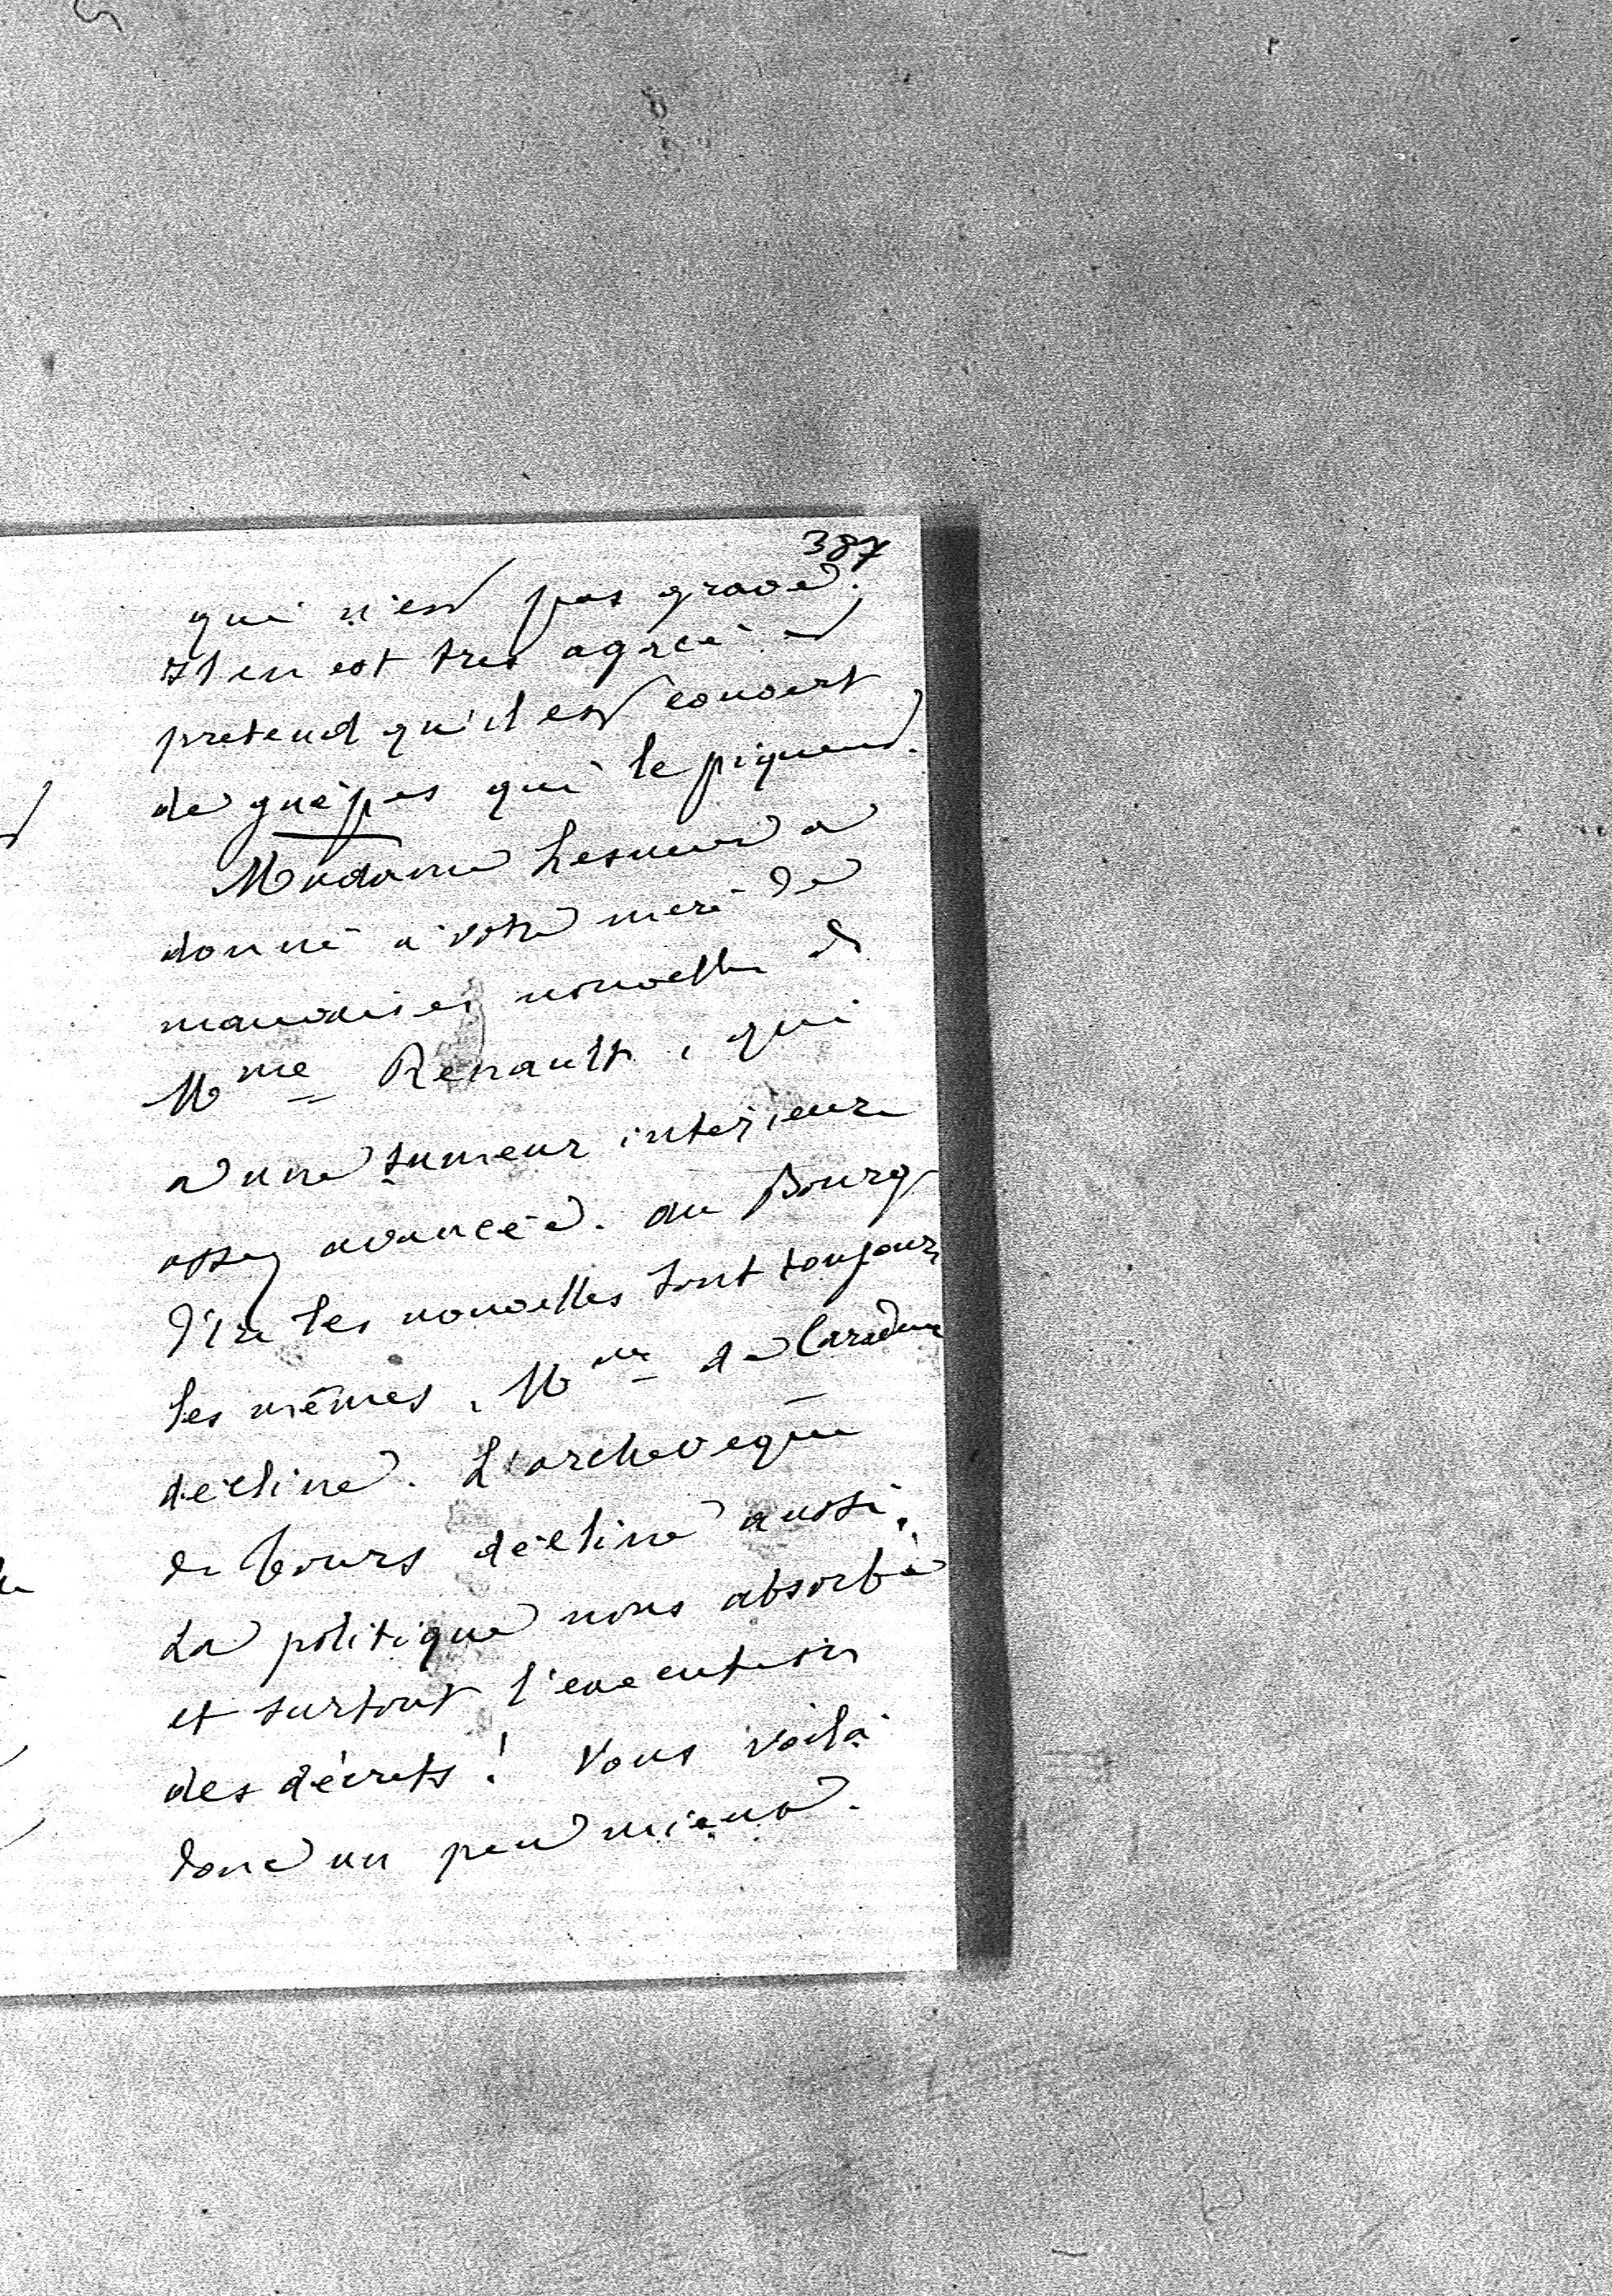 387
qui n'est pas grave.
Il en est très agacé et
pretend qu'il est couvert
de guêpes qui le piquent.
Madame Lesueur a
donné à votre mère de
mauvaises nouvelles de
Mme Renault, qui
a une tumeur interieure
assez avancée. du Bourg
d'Iré les nouvelles sont toujours
les mêmes. Mme de Caradeuc
décline. L'archevêque
de Tours décline aussi.
La politique nous absorbe
et surtout l'execution
des décrets ! Vous voilà
donc un peu mieux.